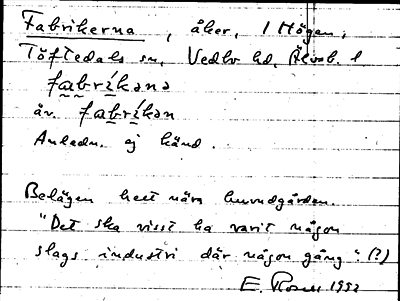 Fabrikerna, åker, 1 Högen,
Töftedals sn, Vedbo hd, Älvsb. l
fabrikəna
äv. fabrikən
Anledn. ej känd.
Belägen helt nära huvudgården.
"Det ska visst ha varit någon
slags industri där någon gång". (?)
E. Rosen 1952